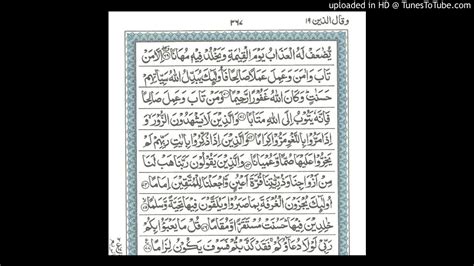 uploaded in HD @ TunesToTube.com
وقال الذين ١٩
٣٦٧
يُّضٰعَفْ لَهُ الْعَذَابُ يَوْمَ الْقِيٰمَةِ وَيَخْلُدْ فِيْهٖ مُهَانًا اِلَّا مَنْ
تَابَ وَاٰمَنَ وَعَمِلَ عَمَلًا صَالِحًا فَاُولٰٓئِكَ يُبَدِّلُ اللّٰهُ سَيِّاٰتِهِمْ
حَسَنٰتٍ وَكَانَ اللّٰهُ غَفُوْرًا رَّحِيْمًا وَمَنْ تَابَ وَعَمِلَ صَالِحًا
فَاِنَّهٗ يَتُوْبُ اِلَى اللّٰهِ مَتَابًا وَالَّذِيْنَ لَا يَشْهَدُوْنَ الزُّوْرَ وَ
اِذَا مَرُّوْا بِاللَّغْوِ مَرُّوْا كِرَامًا وَالَّذِيْنَ اِذَا ذُكِّرُوْا بِاٰيٰتِ رَبِّهِمْ لَمْ
يَخِرُّوْا عَلَيْهَا صُمًّا وَّعُمْيَانًا وَالَّذِيْنَ يَقُوْلُوْنَ رَبَّنَا هَبْ لَنَا
مِنْ اَزْوَاجِنَا وَذُرِّيّٰتِنَا قُرَّةَ اَعْيُنٍ وَّاجْعَلْنَا لِلْمُتَّقِيْنَ اِمَامًا
اُولٰٓئِكَ يُجْزَوْنَ الْغُرْفَةَ بِمَا صَبَرُوْا وَيُلَقَّوْنَ فِيْهَا تَحِيَّةً وَّسَلٰمًا
خٰلِدِيْنَ فِيْهَا حَسُنَتْ مُسْتَقَرًّا وَّمُقَامًا قُلْ مَا يَعْبَؤُا بِكُمْ
رَبِّيْ لَوْلَا دُعَآؤُكُمْ فَقَدْ كَذَّبْتُمْ فَسَوْفَ يَكُوْنُ لِزَامًا